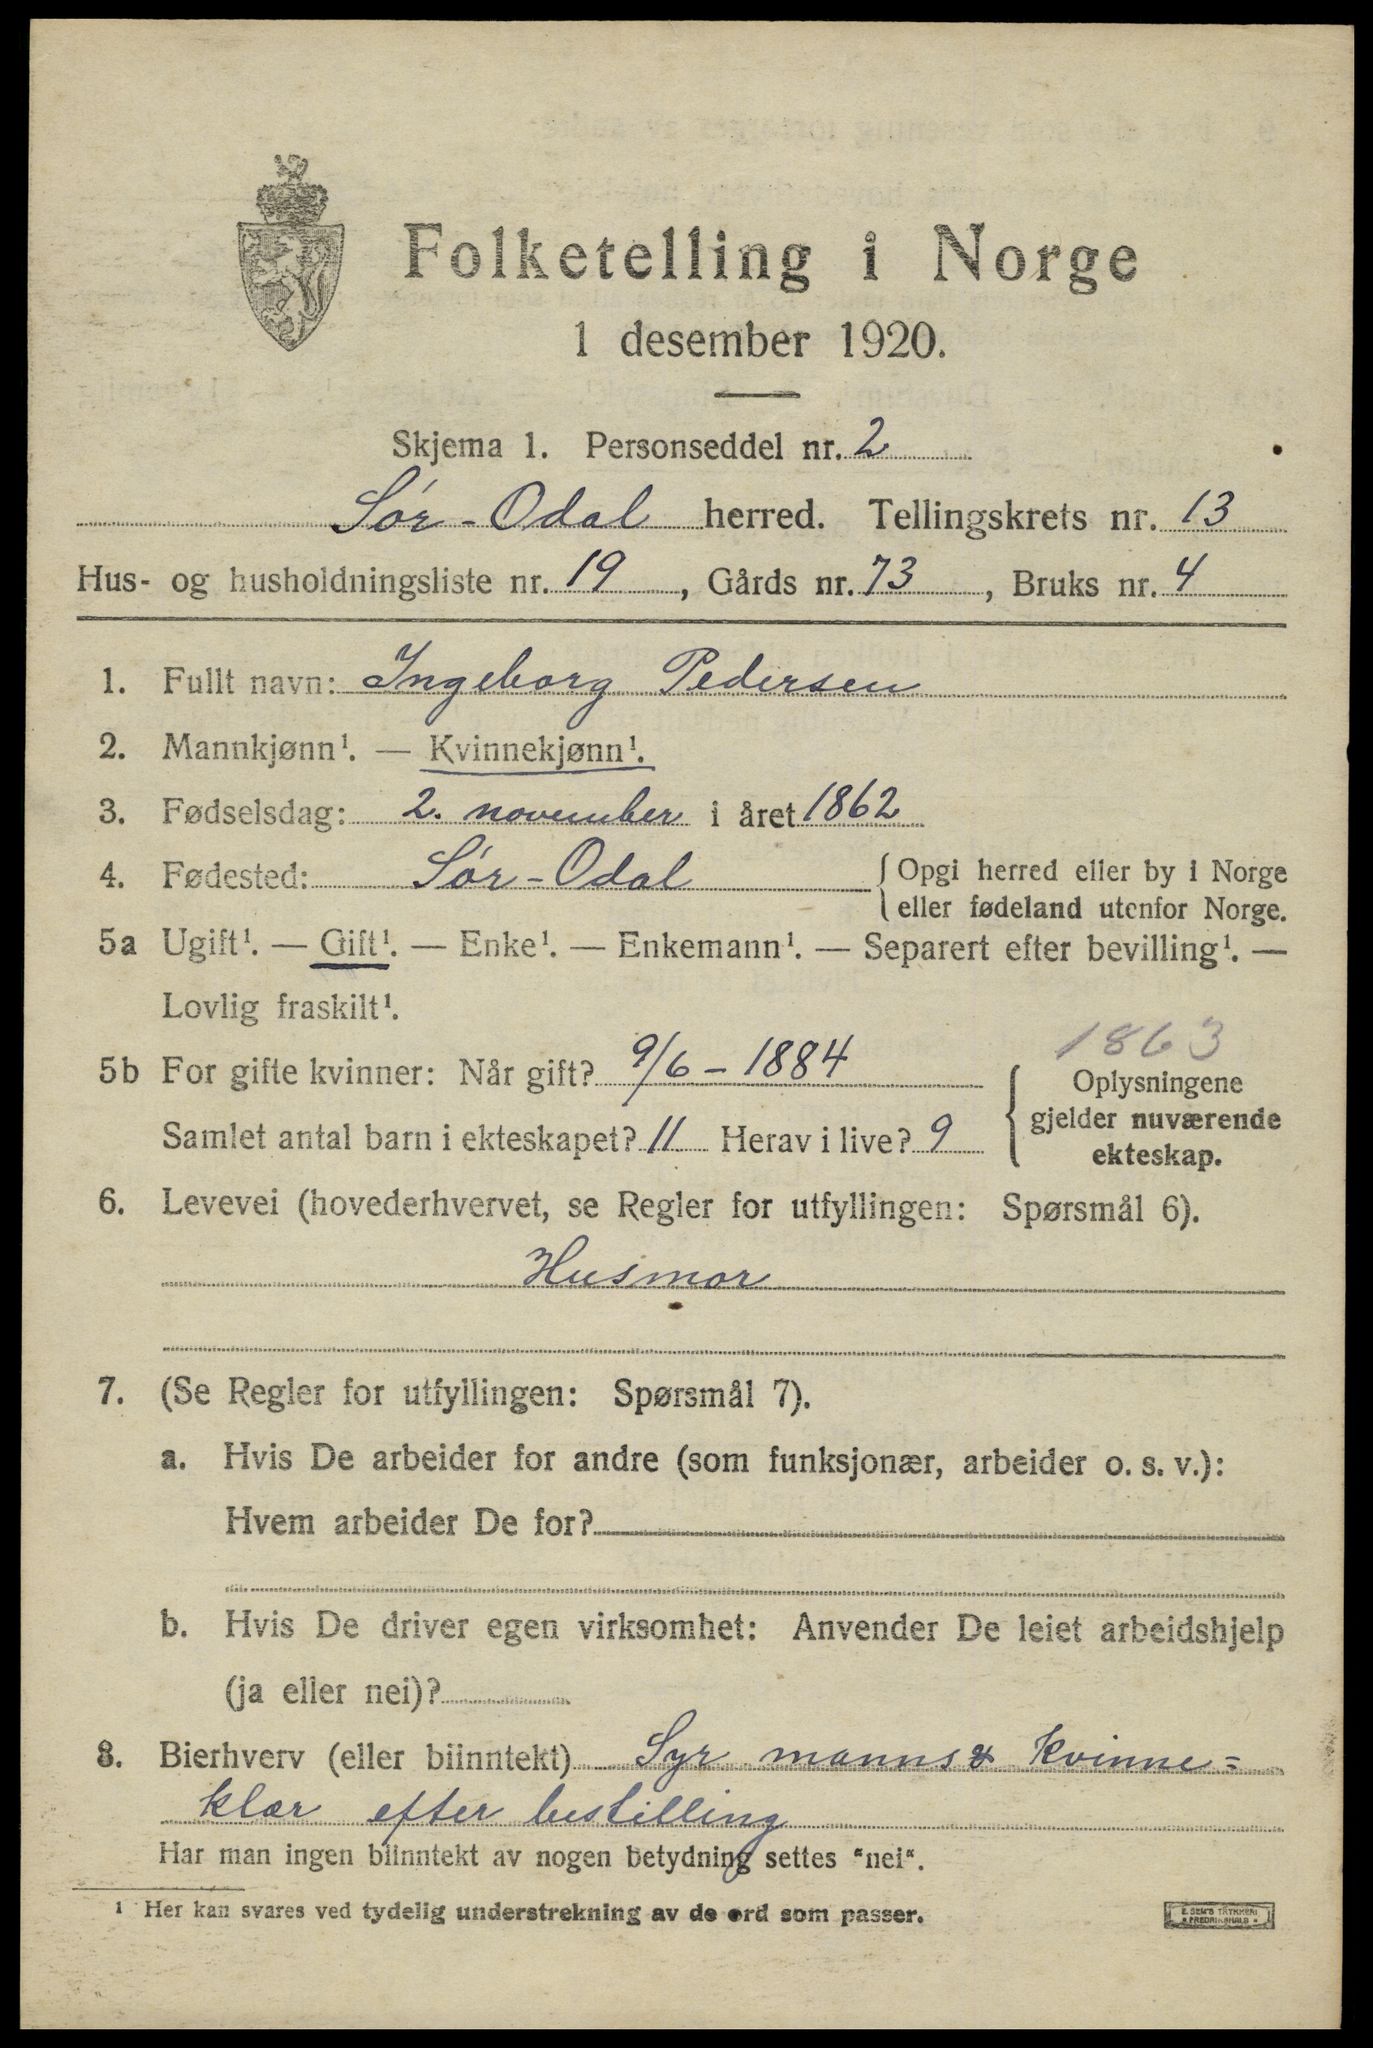 Folketelling i Norge
1 desember 1920.
Skjema 1. Personseddel nr. 2
Sór-Odal herred. Tellingskrets nr. 13
Hus- og husholdningsliste nr. 19, Gårds nr. 73, Bruks nr. 4
1. Fullt navn: Ingeborg Pedersen
2. Mannkjønn¹. — Kvinnekjønn¹.
3. Fødselsdag: 2. november i året 1862
4. Fødested: Sór-Odal { Opgi herred eller by i Norge
eller fødeland utenfor Norge.
5a Ugift¹. — Gift¹. — Enke¹. — Enkemann¹. — Separert efter bevilling¹. —
Lovlig fraskilt¹.
1863
5b For gifte kvinner: Når gift? 9/6 – 1884
Samlet antal barn i ekteskapet? 11 Herav i live? 9
Oplysningene
gjelder nuværende
ekteskap.
6. Levevei (hovederhvervet, se Regler for utfyllingen: Spørsmål 6).
Husmor
7. (Se Regler for utfyllingen: Spørsmål 7).
a. Hvis De arbeider for andre (som funksjonær, arbeider o. s. v.):
Hvem arbeider De for?
b. Hvis De driver egen virksomhet: Anvender De leiet arbeidshjelp
(ja eller nei)?
8. Bierhverv (eller biinntekt) Syr manns & kvinne=
klær efter bestilling
Har man ingen biinntekt av nogen betydning settes "nei".
¹ Her kan svares ved tydelig understrekning av de ord som passer.
E. SEM'S TRYKKERI
FREDRIKSHALD